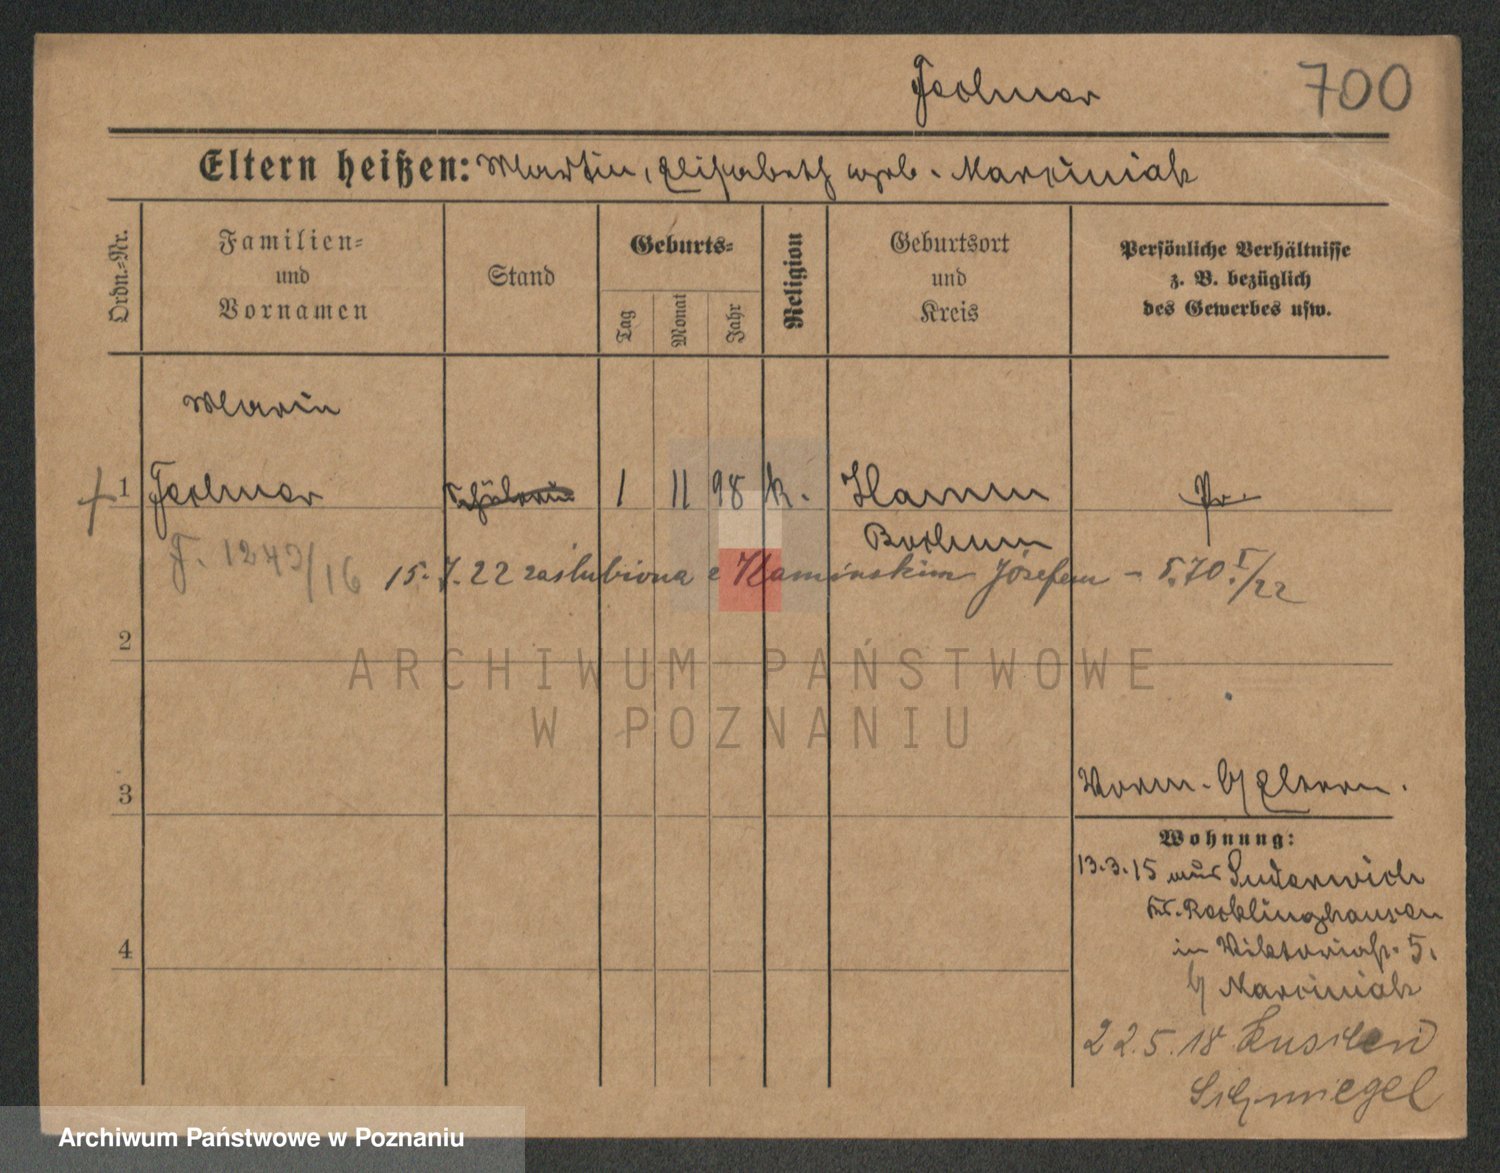 700
Eltern heißen: Martin, Elisabeth geb. Marciniak
Ordn.-Nr.
Familien-
und
Vornamen
Stand
Geburts-
Tag
Monat
Jahr
Religion
Geburtsort
und
Kreis
Persönliche Verhältnisse
z. B. bezüglich
des Gewerbes usw.
1
Schülerin
1
11
98
k.
Hamm
Pr.
Bochum
15.7.22 zaślubiona z Kamińskim Józefem - 5.70.I/22
2
3
4
Vorm. b/ Eltern.
Wohnung:
13.3.15 aus Suderwich
Kr. Recklinghausen
in Viktoriastr. 5.
b/ Marciniak
22.5.18
Schmiegel
ARCHIWUM PAŃSTWOWE
W POZNANIU
Archiwum Państwowe w Poznaniu